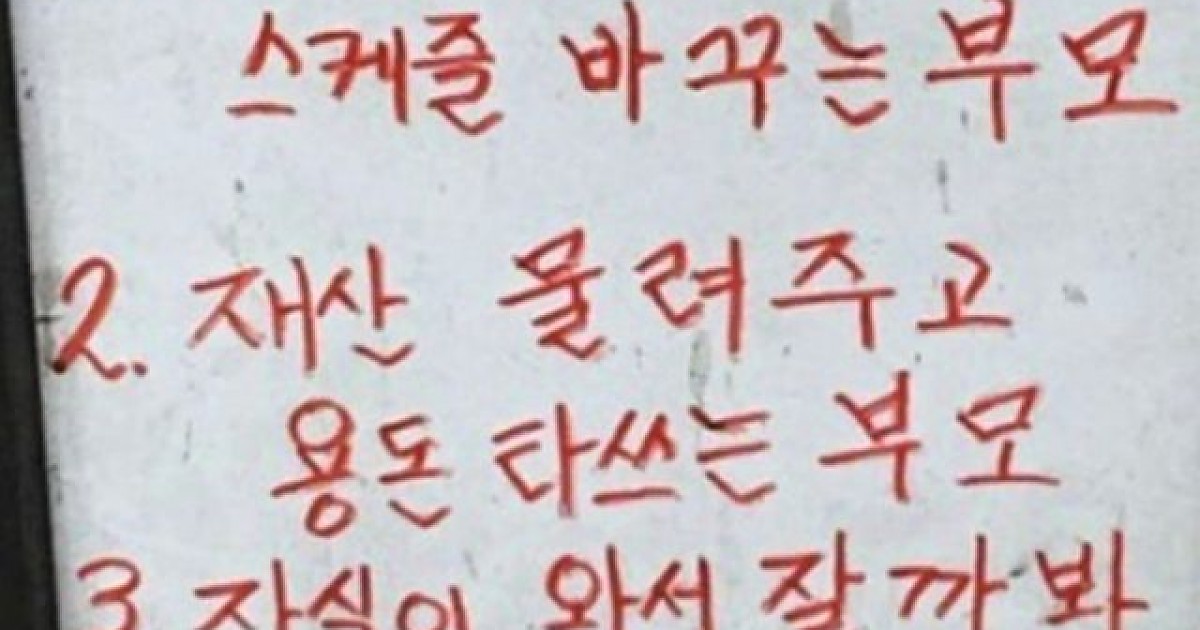 스케줄 바꾸는 부모
2. 재산 물려주고
용돈 타쓰는 부모
3. 자식이 와서 잘까봐